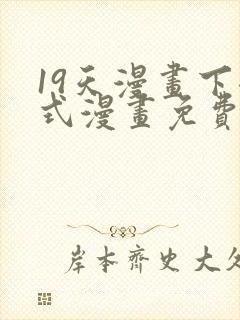 19天漫畫下
式漫畫免費
岸本齊史大久